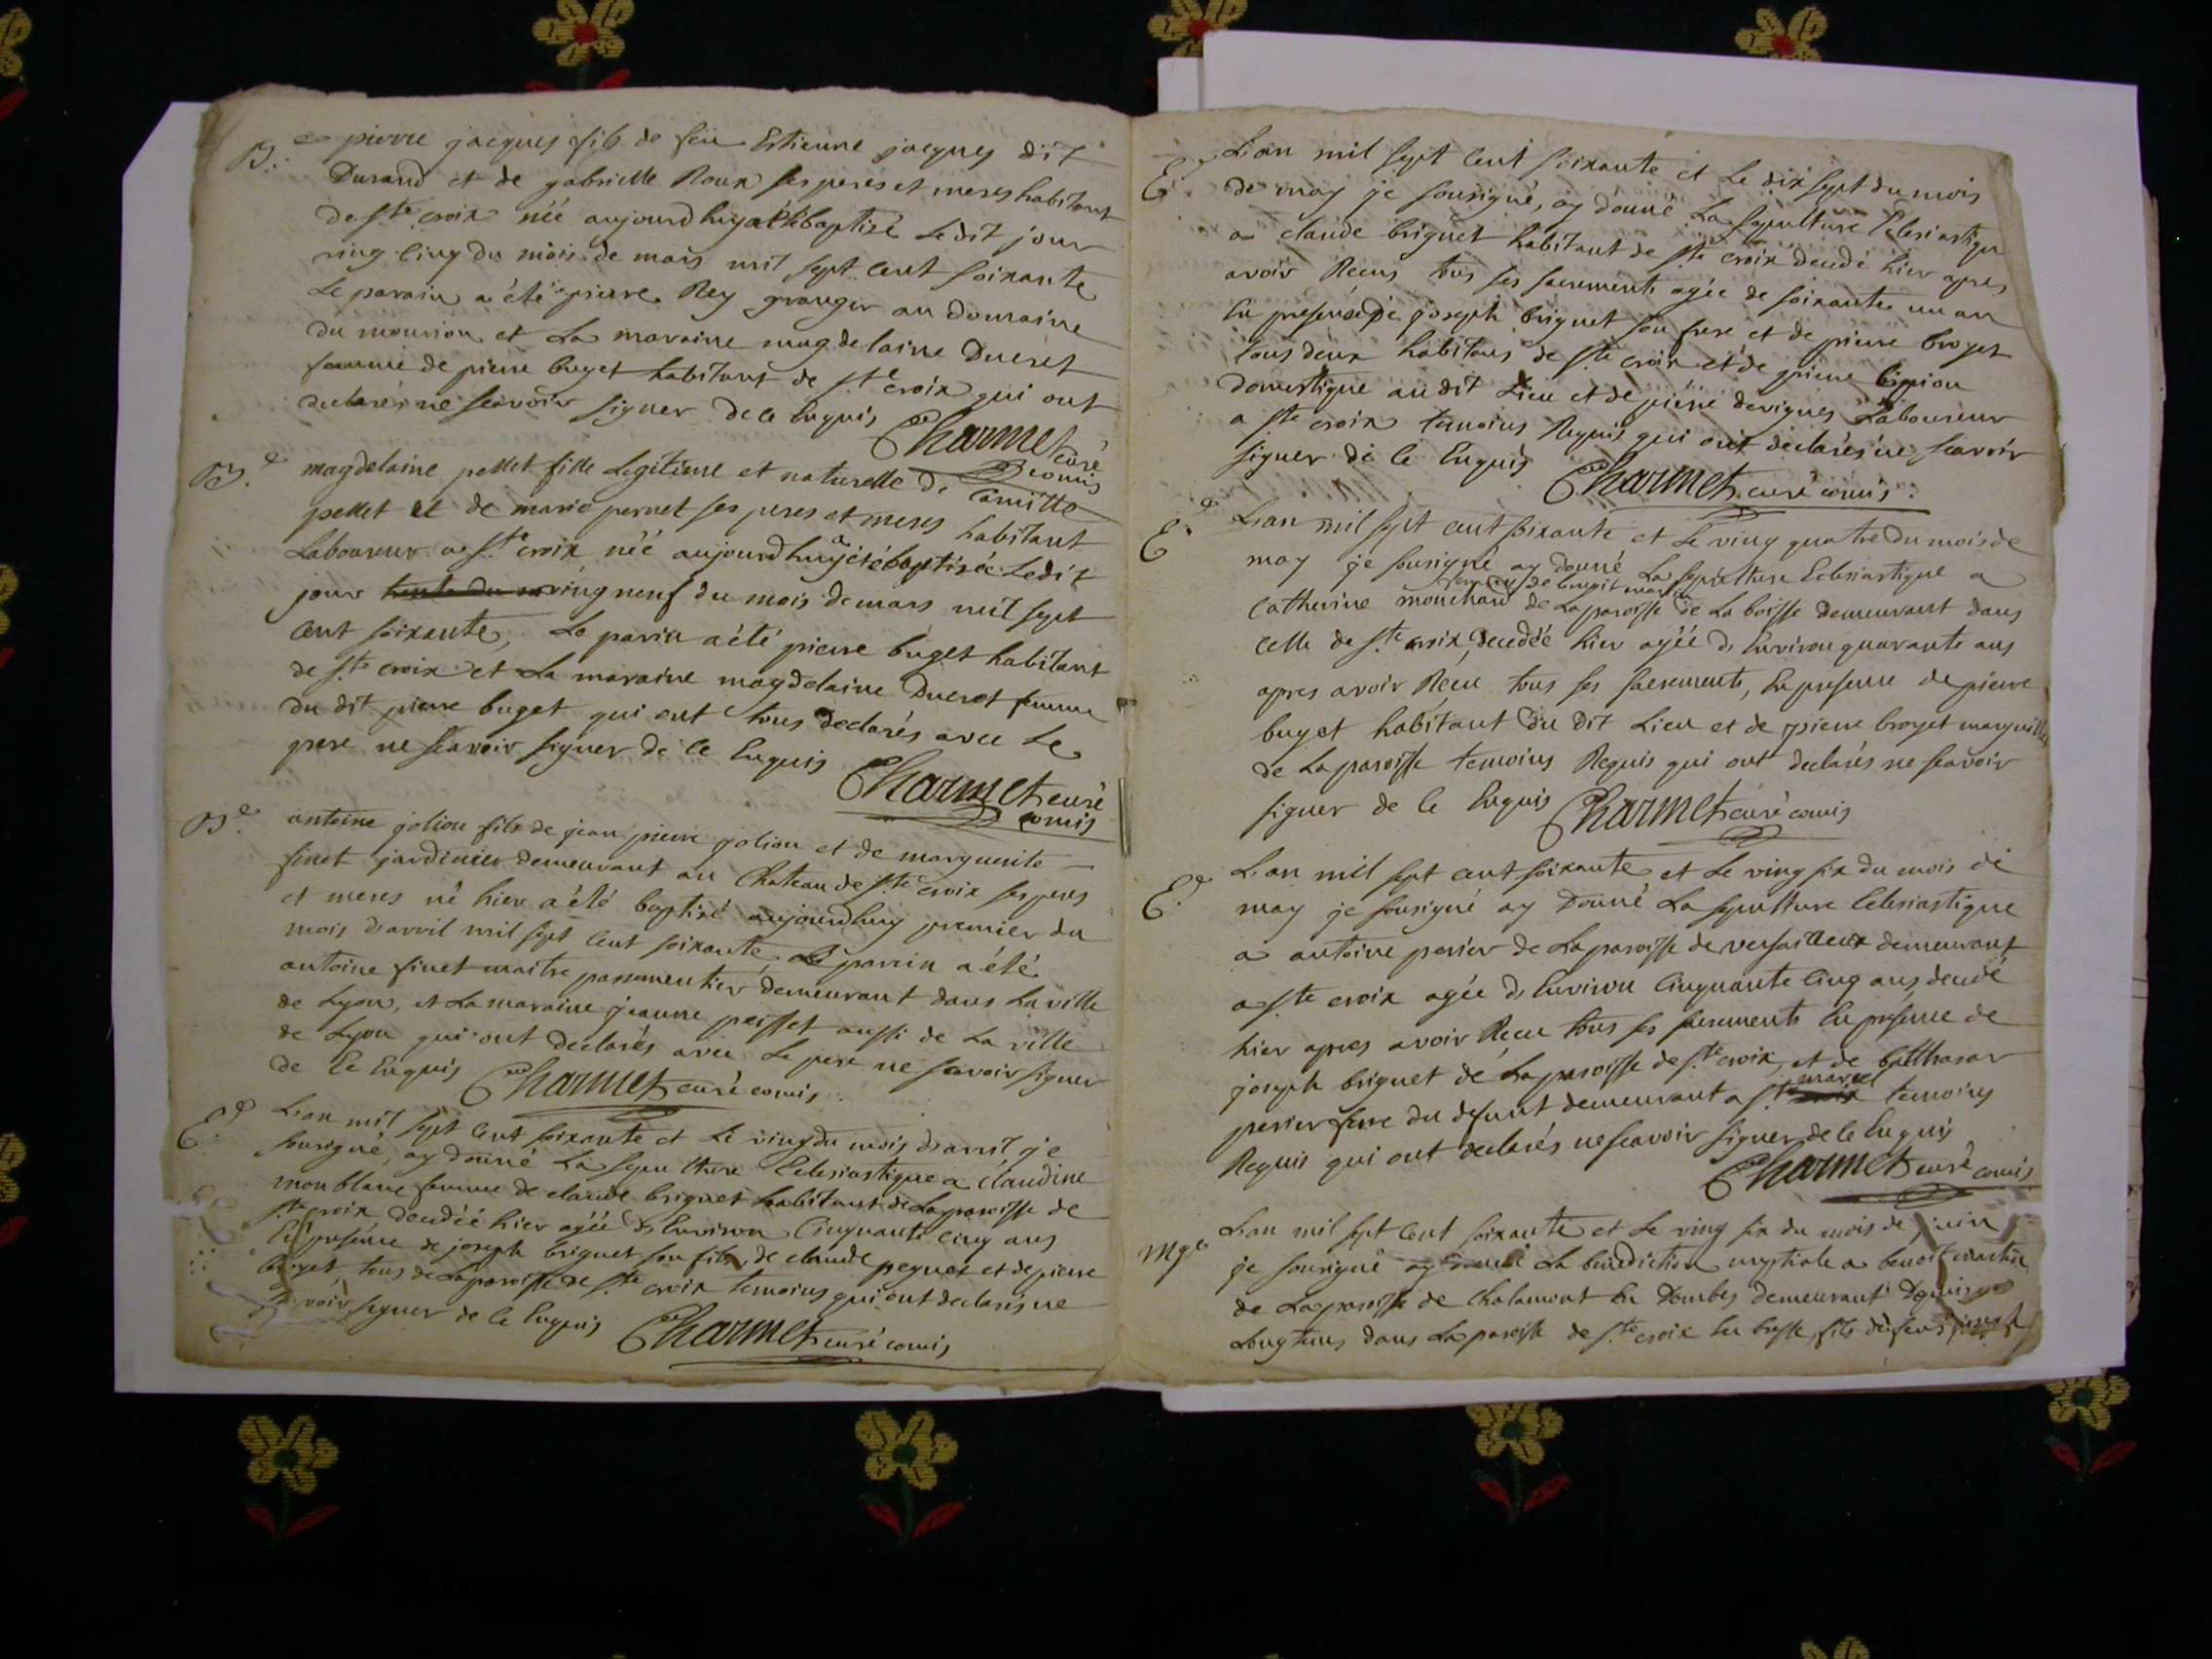 B.e pierre jacques fils de feu Estienne jacques dit
Durand et de gabrielle Roux ses peres et meres habitant
de Ste croix née aujourdhuy a été baptisé le dit jour
ving cinq du mois de mars mil sept cent soixante
Le parain a été pierre Rey granger au domaine
du mourion et La maraine magdelaine Ducret
femme de pierre buget habitant de Ste croix qui ont
declarés ne scavoir signer de ce Enquis
Charmet curé
comis
B.e magdelaine pellet fille Legitime et naturelle de Camille
pellet et de marie pernet ses peres et meres habitant
Laboureur a Ste croix née aujourdhuy a été baptisée Ledit
jour ving neuf du mois de mars mil sept
cent soixante, Le parin a été pierre buget habitant
de Ste croix et La maraine magdelaine Ducret femme
du dit pierre buget qui ont tous declarés avec Le
pere ne scavoir signer de ce Enquis
Charmet curé
comis
B.e antoine jolion fils de jean pierre jolion et de marguerite
finet jardinier demeurant au Chateau de Ste croix ses peres
et meres né hier a été baptisé aujourdhuy premier du
mois d'avril mil sept cent soixante, Le parrin a été
antoine finet maitre passementier demeurant dans La ville
de Lyon, et La maraine jeanne peisset aussi de La ville
de Lyon qui ont declarés avec Le pere ne scavoir signer
de ce Enquis Charmet curé comis.
E.e L'an mil sept cent soixante et Le ving du mois d'avril je
sousigné, ay donné La sepulture Eclesiastique a claudine
monblanc femme de claude briguet habitant de La paroisse de
Ste croix decedéé hier agéé d'Environ Cinquante cinq ans
En presence de joseph briguet son fils, de claude peguet et de pierre
broyet tous de La paroisse de Ste croix temoins qui ont declarés ne
scavoir signer de ce Enquis Charmet curé comis
E.e L'an mil sept cent soixante et Le dix sept du mois
de may je sousigné, ay donné La sepulture Eclesiastique
a claude briguet habitant de Ste croix decedé hier apres
avoir Recus tous ses sacrements agée de soixante un an
En presence de joseph briguet son frere et de pierre broyet
tous deux habitans de Ste croix et de pierre
domestique au dit Lieu et de pierre devignes Laboureur
a Ste croix temoins Requis qui ont declarés ne scavoir
signer de ce Enquis Charmet curé comis.
E.e L'an mil sept cent soixante et Le ving quatre du mois de
may je sousigné ay donné La sepulture Eclesiastique a
femme de benoit martin
Catherine mouchard de La paroisse de La boisse demeurant dans
celle de Ste croix, decedéé hier agéé d'Environ quarante ans
apres avoir Recu tous ses sacrements, En presence de pierre
buget habitant du dit Lieu et de pierre broyet marguillier
de La paroisse temoins Requis qui ont declarés ne scavoir
signer de ce Enquis Charmet curé comis
E.e L'an mil sept cent soixante et Le ving six du mois de
may je sousigné ay donné La sepulture Eclesiastique
a antoine perier de La paroisse de versailleux demeurant
a Ste croix agée d'Environ Cinquante Cinq ans, decedé
hier apres avoir Recu tous ses sacrements En presence de
joseph briguet de La paroisse de Ste croix, et de balthasar
perier frere du defunt demeurant a St marcel temoins
Requis qui ont declarés ne scavoir signer de ce Enquis
Charmet curé comis
Mge L'an mil sept cent soixante et Le ving six du mois de juin
je sousigné ay donné La benediction nuptiale a benoit martin
de La paroisse de Chalamont En Dombes demeurant Depuis
Longtems dans La paroisse de Ste croix En bresse, fils de feus joseph